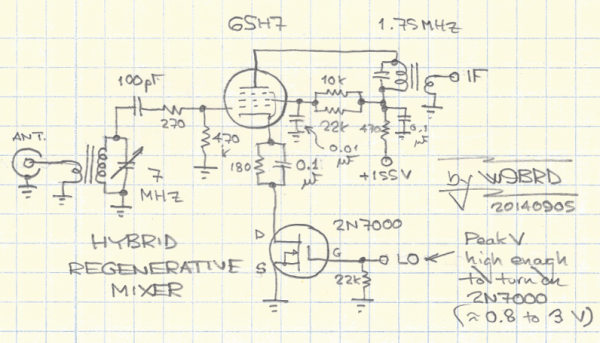 6SH7
1.75MHZ
100pF
10k
IF
270
22k
470
0.1
μF
470
k
0.01
μF
ANT.
180
0.1
μF
+155V
7
MHZ
by W9BRD
20140905
2N7000
D
G
S
LO
22k
HYBRID
REGENERATIVE
MIXER
Peak V
high enough
to turn on
2N7000
(≈ 0.8 to 3 V)